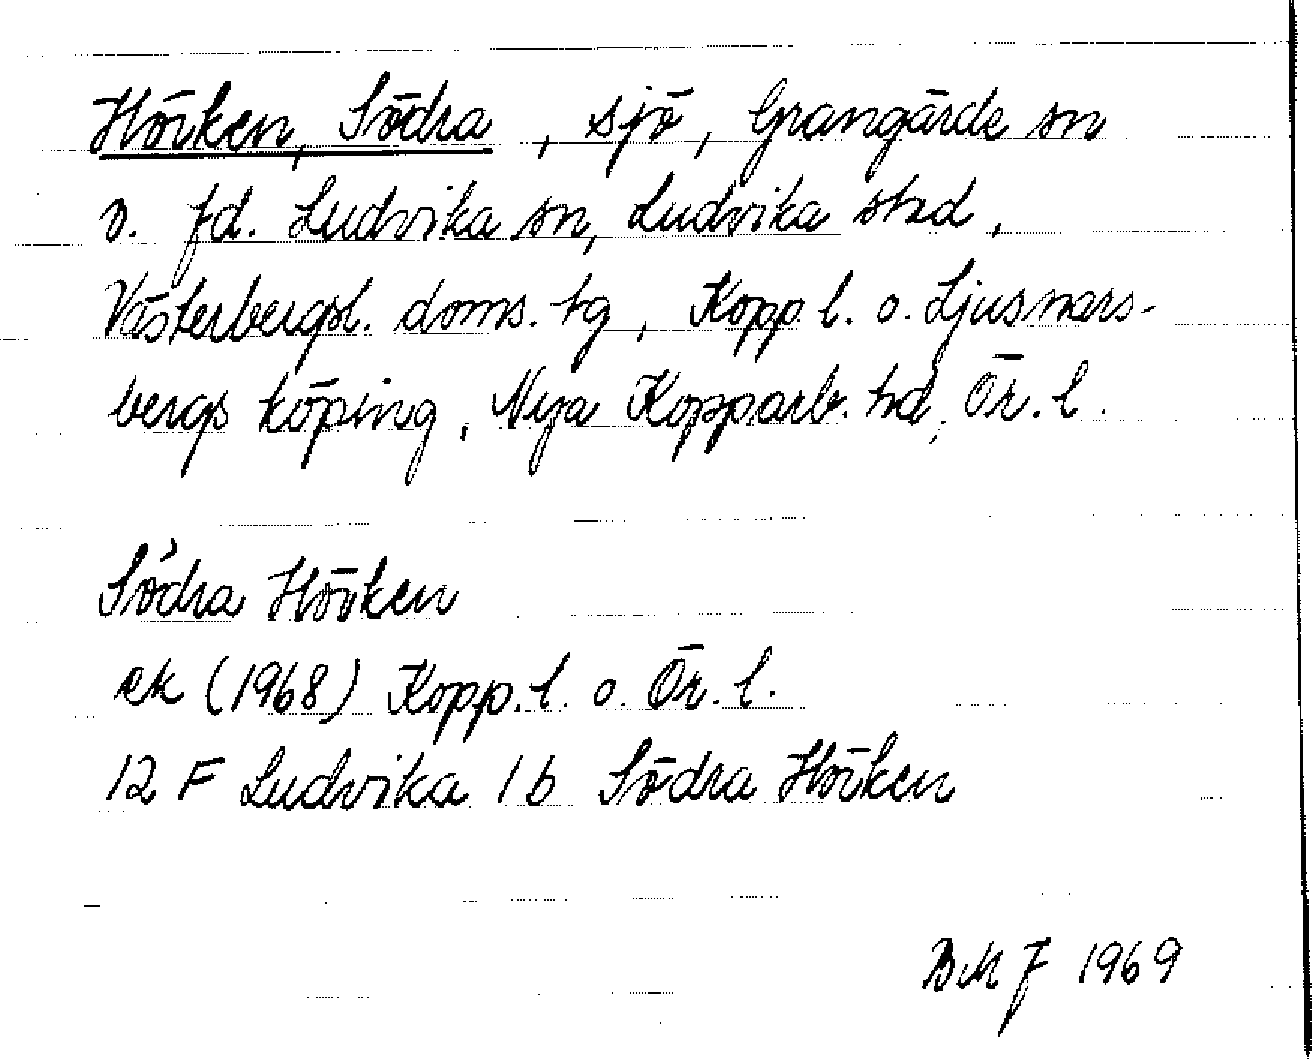 Hörken, Södra, sjö, Grangärde sn
o. fd. Ludvika sn, Ludvika stad,
Västerbergsl. doms. tg, Kopp l. o. Ljusnars-
bergs köping, Nya Kopparb. hd, Ör. l.
Södra Hörken
ek (1968) Kopp. l. o. Ör. l.
12 F Ludvika 1 b Södra Hörken
1969